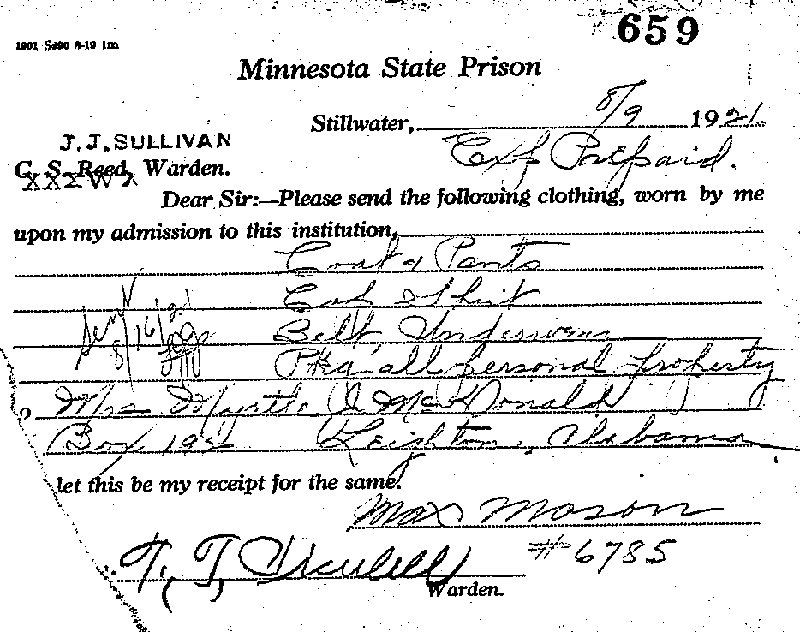 659
Minnesota State Prison
Stillwater, 8/9 1921
J. J. SULLIVAN
Exp Prepaid.
C. S. Reed, Warden.
Dear Sir:—Please send the following clothing, worn by me
upon my admission to this institution,
Coat & Pants
Cap Shirt
Belt Underwear
all personal property
Mrs Myrtle McDonald
Box Leighton, Alabama
let this be my receipt for the same.
Max Mason
#6785
Warden.